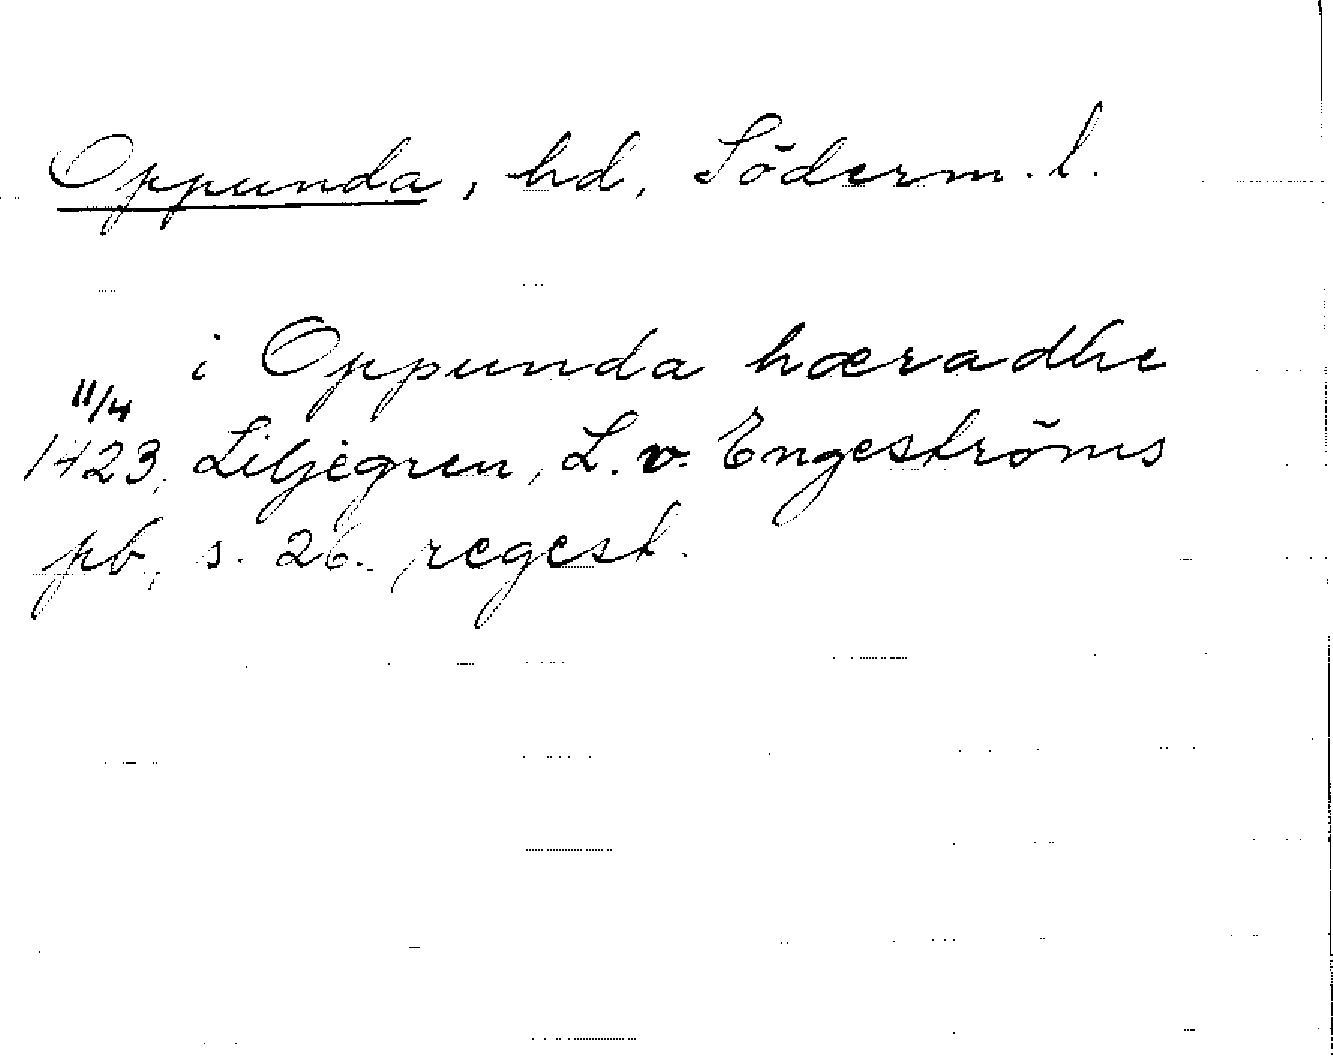 Oppunda, hd, Söderm. l.
i Oppunda hæradhe
11/4
1423. Liljegren, L. v. Engeströms
pb, s. 26. regest.